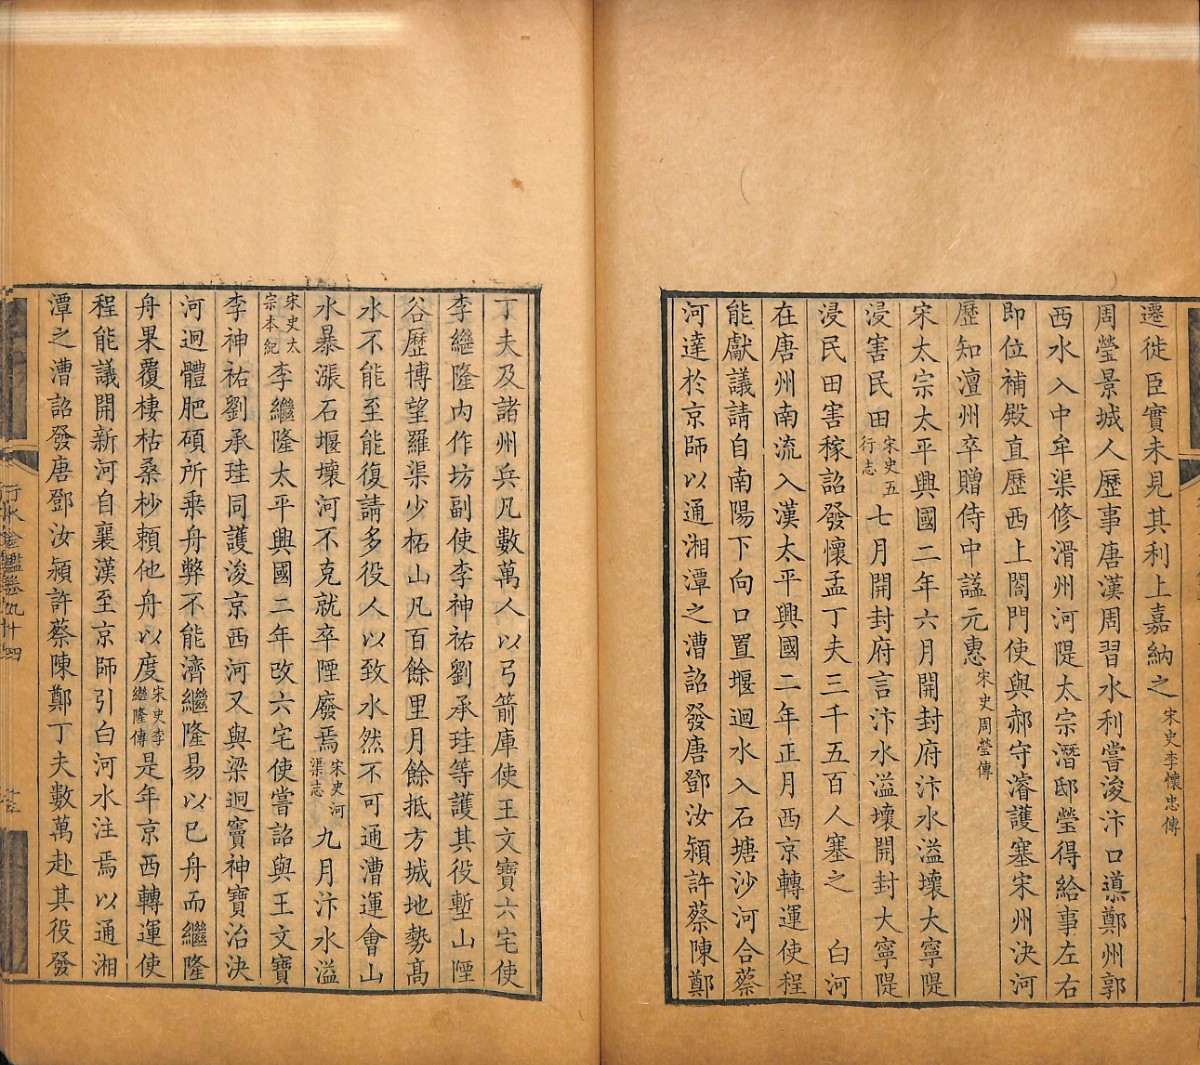 遷徙臣實未見其利上嘉納之宋史李懷忠傳
周瑩景城人歷事唐漢周習水利嘗浚汴口導鄭州郭
西水入中牟渠修滑州河隄太宗潛邸瑩得給事左右
即位補殿直歷西上閤門使與郝守濬護塞宋州決河
歷知澶州卒贈侍中諡元惠宋史周瑩傳
宋太宗太平興國二年六月開封府汴水溢壞大寧隄
浸害民田宋史五行志七月開封府言汴水溢壞開封大寧隄
浸民田害稼詔發懷孟丁夫三千五百人塞之 白河
在唐州南流入漢太平興國二年正月西京轉運使程
能獻議請自南陽下向口置堰迴水入石塘沙河合蔡
河達於京師以通湘潭之漕詔發唐鄧汝潁許蔡陳鄭
丁夫及諸州兵凡數萬人以弓箭庫使王文寶六宅使
李繼隆內作坊副使李神祐劉承珪等護其役塹山堙
谷歷博望羅渠少柘山凡百餘里月餘抵方城地勢高
水不能至能復請多役人以致水然不可通漕運會山
水暴漲石堰壞河不克就卒堙廢焉宋史河渠志九月汴水溢
宋史太宗本紀李繼隆太平興國二年改六宅使嘗詔與王文寶
李神祐劉承珪同護浚京西河又與梁迥竇神寶治決
河迥體肥碩所乘舟弊不能濟繼隆易以己舟而繼隆
舟果覆棲枯桑杪賴他舟以度宋史李繼隆傳是年京西轉運使
程能議開新河自襄漢至京師引白河水注焉以通湘
潭之漕詔發唐鄧汝潁許蔡陳鄭丁夫數萬赴其役發
行水金鑑卷九十四